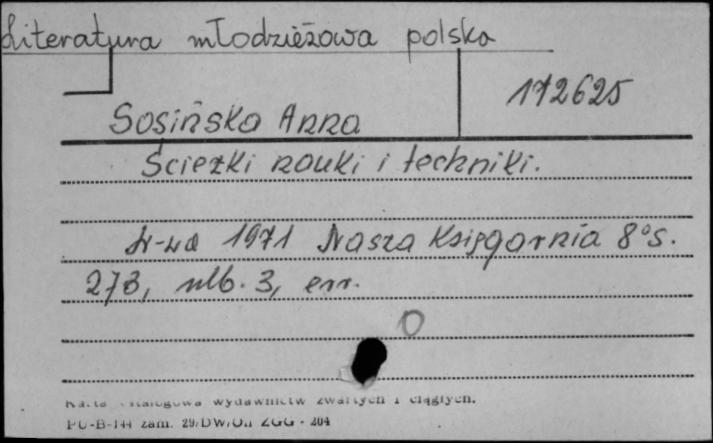 Literatura młodzieżowa polska
172625
Sosińska Anna
Ścieżki nauki i techniki.
W-wa 1971 Nasza Księgarnia 8° s.
273, nlb. 3, err.
Karta katalogowa wydawnictw zwartych i ciągłych.
PU-B-144 zam. 29/DW/ ZGG - 204